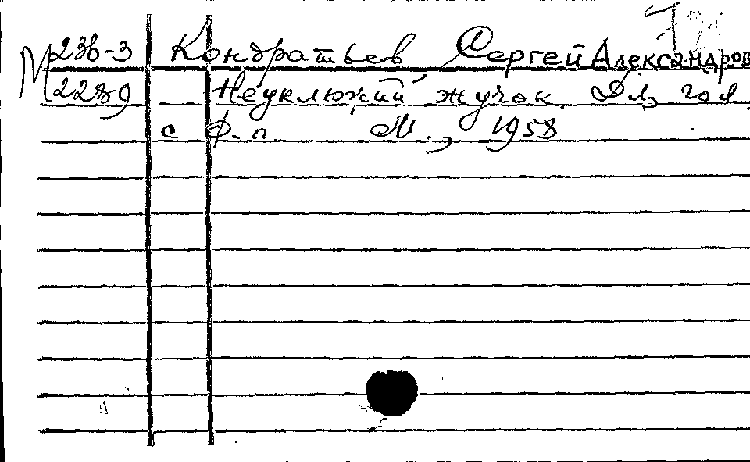 М 236-3 Кондратьев Сергей Александров
2289 Неуклюжий жучок. Дл, гол
с ф-п М., 1958